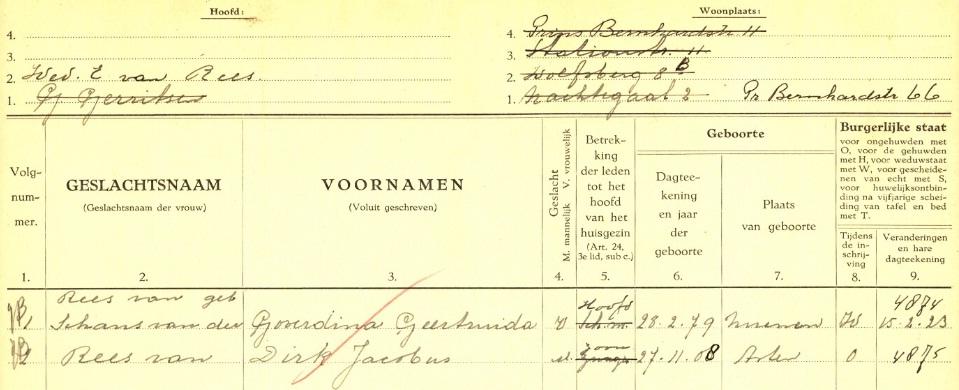 Hoofd:
4.
3.
2. Wed. E van Rees.
1. Gj Gerritsen
Woonplaats:
4. Prins Bernhardstr 11
3. Stationstr. 11
2. Wolfsberg 8B
1. Nachtegaal 2 Pr Bernhardstr 66
Volg-
num-
mer.
GESLACHTSNAAM
(Geslachtsnaam der vrouw)
VOORNAMEN
(Voluit geschreven)
Geslacht
M. mannelijk V. vrouwelijk
Betrek-
king
der leden
tot het
hoofd
van het
huisgezin
(Art. 24,
3e lid, sub c.)
Geboorte
Dagtee-
kening
en jaar
der
geboorte
Plaats
van geboorte
Burgerlijke staat
voor ongehuwden met
O, voor de gehuwden
met H, voor weduwstaat
met W, voor gescheide-
nen van echt met S,
voor huwelijksontbin-
ding na vijfjarige schei-
ding van tafel en bed
met T.
Tijdens
de in-
schrij-
ving
Veranderingen
en hare
dagteekening
1. 2. 3. 4. 5. 6. 7. 8. 9.
Rees van geb Hoofd 4874
1 Schans van der Goverdina Geertruida V 28.2.79 Nuenen W 15.2.23
Zoon
2 Rees van Dirk Jacobus M. 27.11.08 Asten O 4875